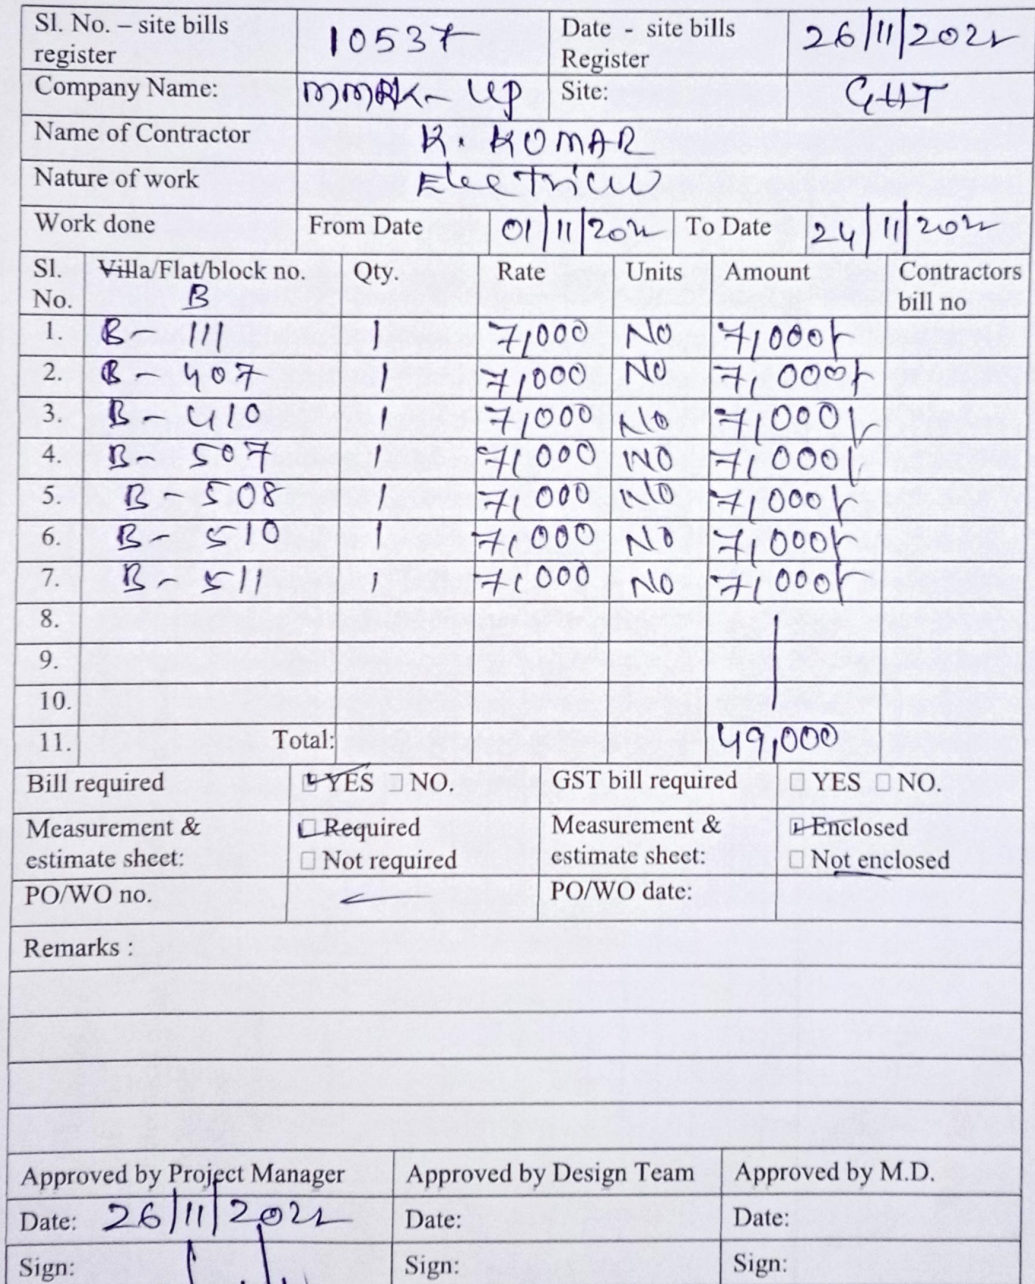 Sl. No. – site bills register 10537 Date - site bills Register 26/11/2022
Company Name: MMRK- UP Site: GHT
Name of Contractor K. KUMAR
Nature of work Electrical
Work done From Date 01/11/2022 To Date 24/11/2022
Sl. No. Villa/Flat/block no. B Qty. Rate Units Amount Contractors bill no
1. B 111 1 7,000 No 7,000/-
2. B - 407 1 7,000 No 7,000/-
3. B- 410 1 7,000 No 7,000/-
4. B- 507 1 7,000 NO 7,000/-
5. B - 508 1 7,000 NO 7,000/-
6. B- 510 1 7,000 NO 7,000/-
7. B- 511 1 7,000 NO 7,000/-
8.
9.
10.
11. Total: 49,000
Bill required YES NO. GST bill required YES NO.
Measurement & estimate sheet: Required Not required Measurement & estimate sheet: Enclosed Not enclosed
PO/WO no. PO/WO date:
Remarks :
Approved by Project Manager Approved by Design Team Approved by M.D.
Date: 26/11/2022 Date: Date:
Sign: Sign: Sign: